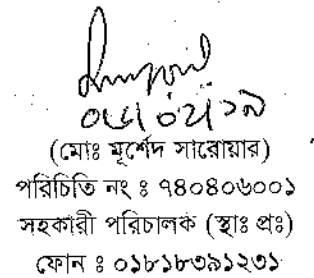 (মোঃ মূর্শেদ সারোয়ার)
পরিচিতি নং ঃ ৭৪০৪০৬০০১
সহকারী পরিচালক (স্থাঃ প্রঃ)
ফোন ঃ ০১৮১৮৩৯১২৩১